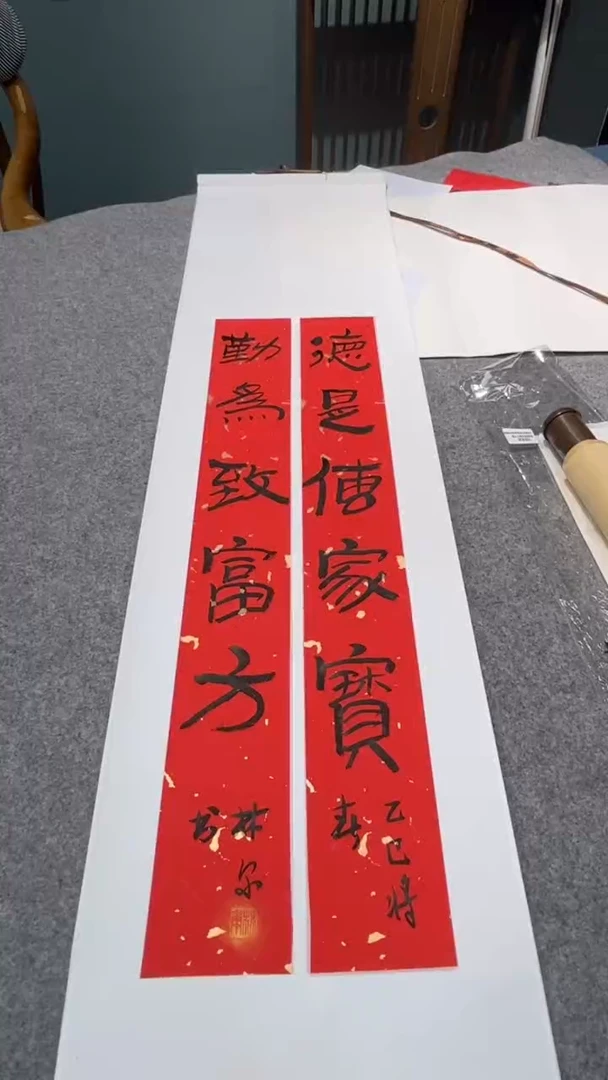 德是傳家寶
乙巳將
春
勤為致富方
林尔
书